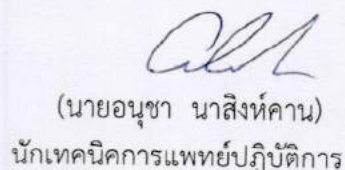 (นายอนุชา นาสิงห์คาน)
นักเทคนิคการแพทย์ปฏิบัติการ